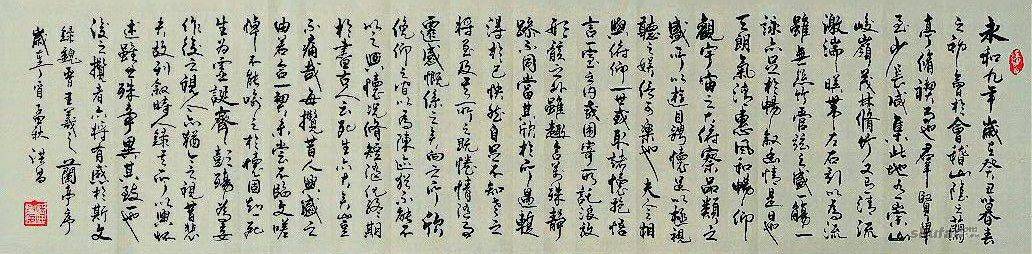 永和九年歲在癸丑暮春
之初會於會稽山陰之蘭
亭脩禊事也群賢畢
至少長咸集此地有崇山
峻嶺茂林脩竹又有清流
激湍暎帶左右引以為流
雖無絲竹管弦之盛一觴一
詠亦足以暢敘幽情是日也
天朗氣清惠風和暢仰
觀宇宙之大俯察品類之
盛所以遊目騁懷足以極視
聽之娛信可樂也夫人之相
與俯仰一世或取諸懷抱悟
言一室之內或因寄所託放浪
形骸之外雖趣舍萬殊靜
躁不同當其欣於所遇輒
得於己怏然自足不知老之
將至及其所之既惓情隨事
遷感慨係之矣向之所欣
俛仰之間以為陳迹猶不能不
以之興懷況脩短隨化終期
於盡古人云死生亦大矣豈
不痛哉每攬昔人興感之
由若合一契未嘗不臨文嗟
悼不能喻之於懷固知死
生為虛誕齊彭殤為妄
作後之視今亦猶今之視昔悲
夫故列敘時人錄其所
述雖世殊事異其致一也
後之攬者亦將有感於斯文
錄魏晉王羲之蘭亭序